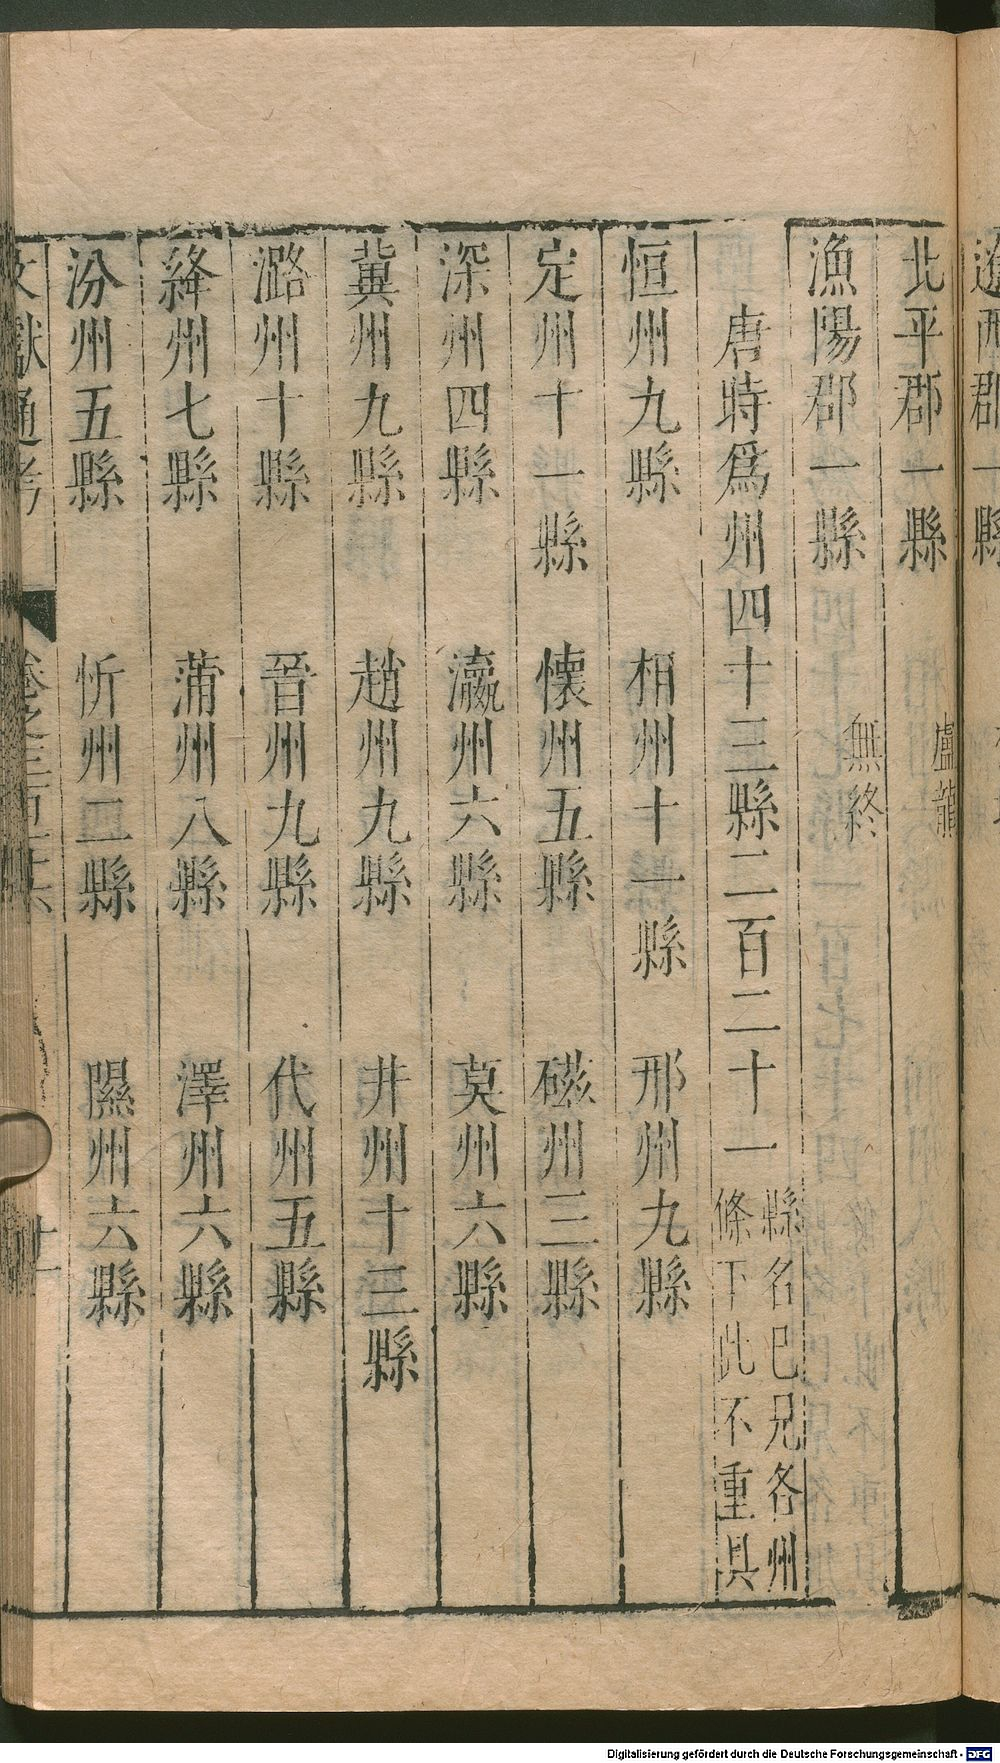 遼西郡一縣
北平郡一縣 盧龍
漁陽郡一縣 無終
唐時爲州四十三縣二百二十一 縣名巳見各州條下此不重具
恒州九縣 相州十一縣 邢州九縣
定州十一縣 懐州五縣 磁州三縣
深州四縣 瀛州六縣 莫州六縣
冀州九縣 趙州九縣 井州十三縣
潞州十縣 晉州九縣 代州五縣
絳州七縣 蒲州八縣 澤州六縣
汾州五縣 忻州二縣 隰州六縣
文獻通考 卷之三百十六
Digitalisierung gefördert durch die Deutsche Forschungsgemeinschaft - DFG